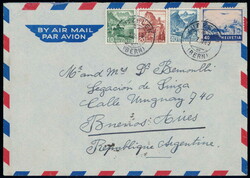 BY AIR MAIL
PAR AVION
HELVETIA
(BERN)
(BERN)
Mr. and Mrs Dr Bernoulli
Legacion de Suiza
Calle Uruguay 740
Buenos Aires
Republique Argentine